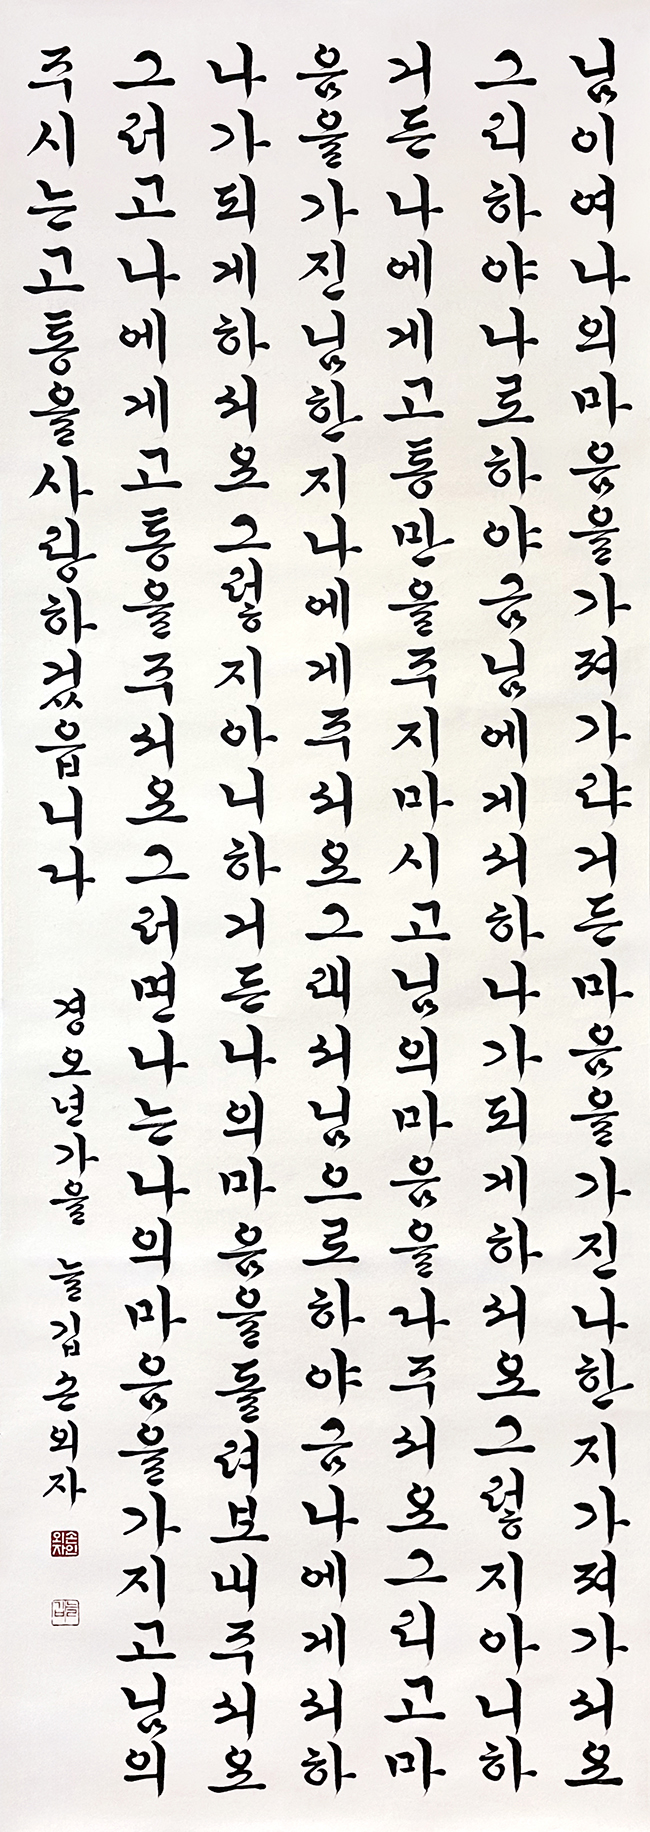 님이여나의마음을가져가랴거든마음을가진나한지가져가쇠요
그리하야나로하야금님에게쇠하나가되게하쇠요그렇지아니하
거든나에게고통만을주지마시고님의마음을다주쇠요그리고마
음을가진님한지나에게주쇠요그래쇠님으로하야금나에게쇠하
나가되게하쇠요그렇지아니하거든나의마음을돌려보내주쇠요
그러고나에게고통을주쇠요그러면나는나의마음을가지고님의
주시는고통을사랑하겄읍니다 경오년가을 늘깁손외자